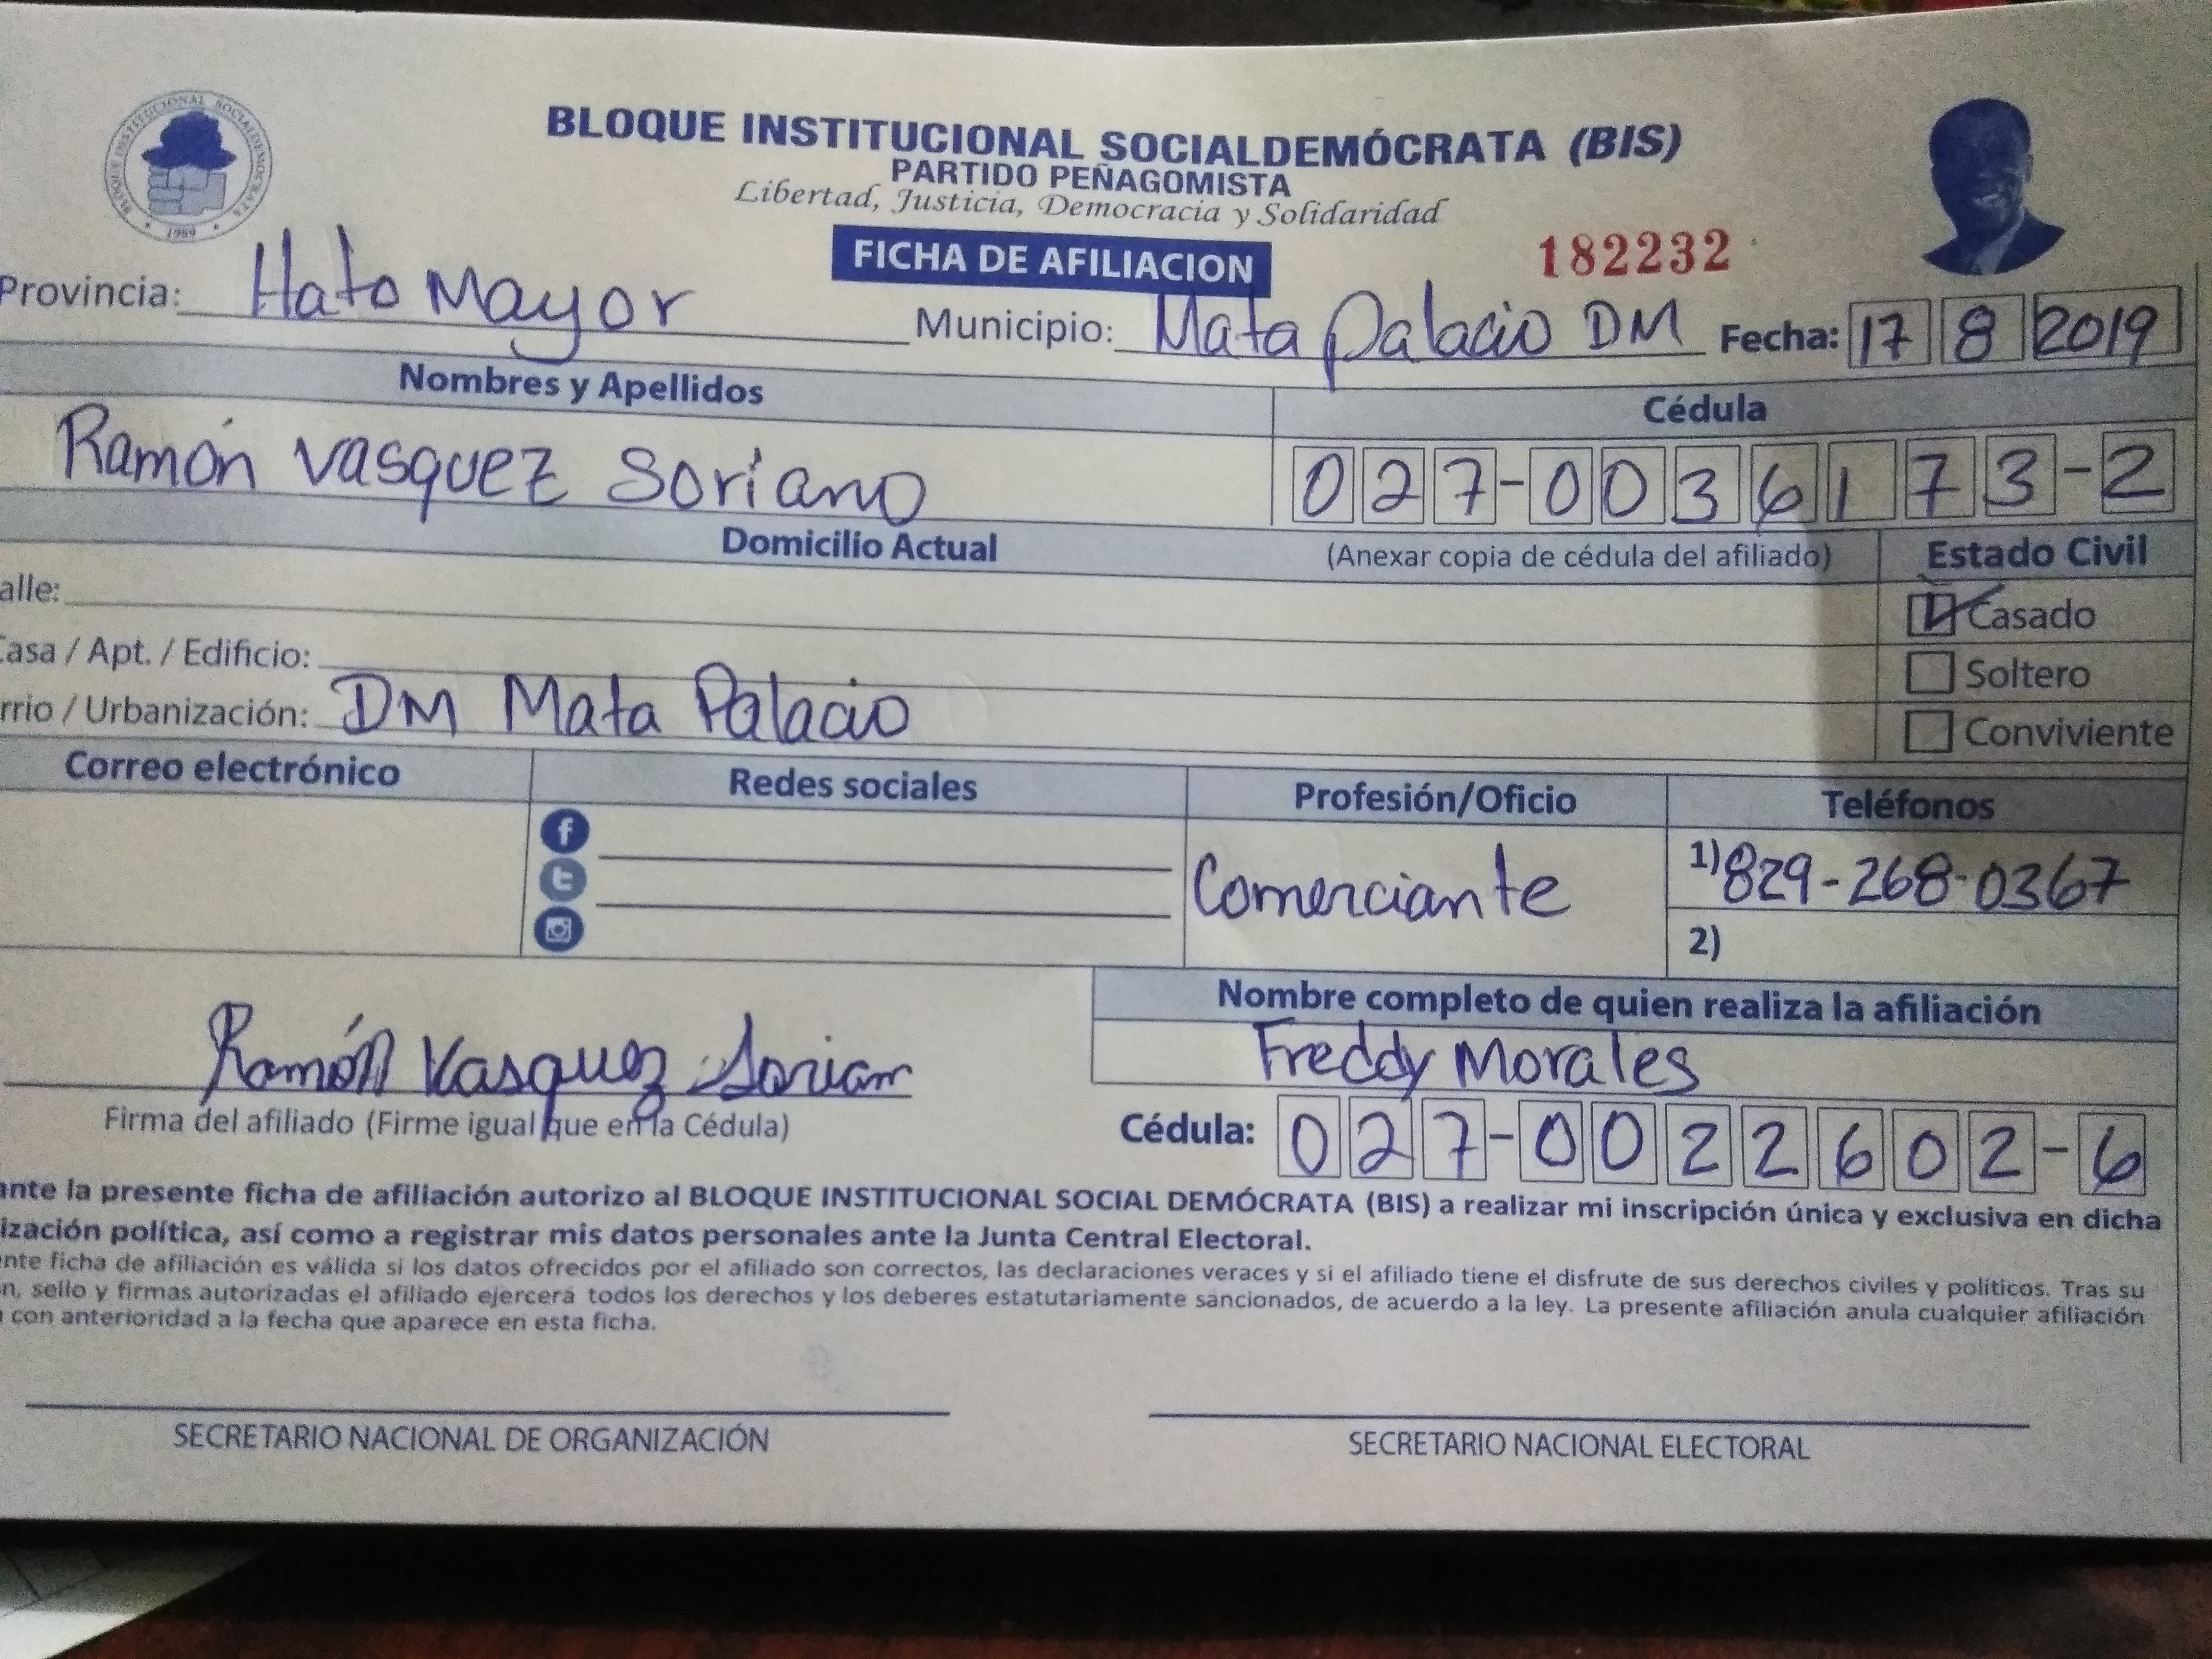 BLOQUE INSTITUCIONAL SOCIALDEMOCRATA
1989
BLOQUE INSTITUCIONAL SOCIALDEMÓCRATA (BIS)
PARTIDO PEÑAGOMISTA
Libertad, Justicia, Democracia y Solidaridad
FICHA DE AFILIACION
182232
Provincia: Hato Mayor Municipio: Mata Palacio DM Fecha: 17 8 2019
Nombres y Apellidos Cédula
Ramón Vasquez Soriano 027-0036173-2
Domicilio Actual (Anexar copia de cédula del afiliado) Estado Civil
alle: Casado
Casa / Apt. / Edificio: Soltero
rrio / Urbanización: DM Mata Palacio Conviviente
Correo electrónico Redes sociales Profesión/Oficio Teléfonos
Comerciante 1) 829-268-0367
2)
Nombre completo de quien realiza la afiliación
Freddy Morales
Ramón Vasquez Sorian
Firma del afiliado (Firme igual que en la Cédula) Cédula: 027-0022602-6
ante la presente ficha de afiliación autorizo al BLOQUE INSTITUCIONAL SOCIAL DEMÓCRATA (BIS) a realizar mi inscripción única y exclusiva en dicha
ización política, así como a registrar mis datos personales ante la Junta Central Electoral.
nte ficha de afiliación es válida si los datos ofrecidos por el afiliado son correctos, las declaraciones veraces y si el afiliado tiene el disfrute de sus derechos civiles y políticos. Tras su
n, sello y firmas autorizadas el afiliado ejercerá todos los derechos y los deberes estatutariamente sancionados, de acuerdo a la ley. La presente afiliación anula cualquier afiliación
con anterioridad a la fecha que aparece en esta ficha.
SECRETARIO NACIONAL DE ORGANIZACIÓN SECRETARIO NACIONAL ELECTORAL